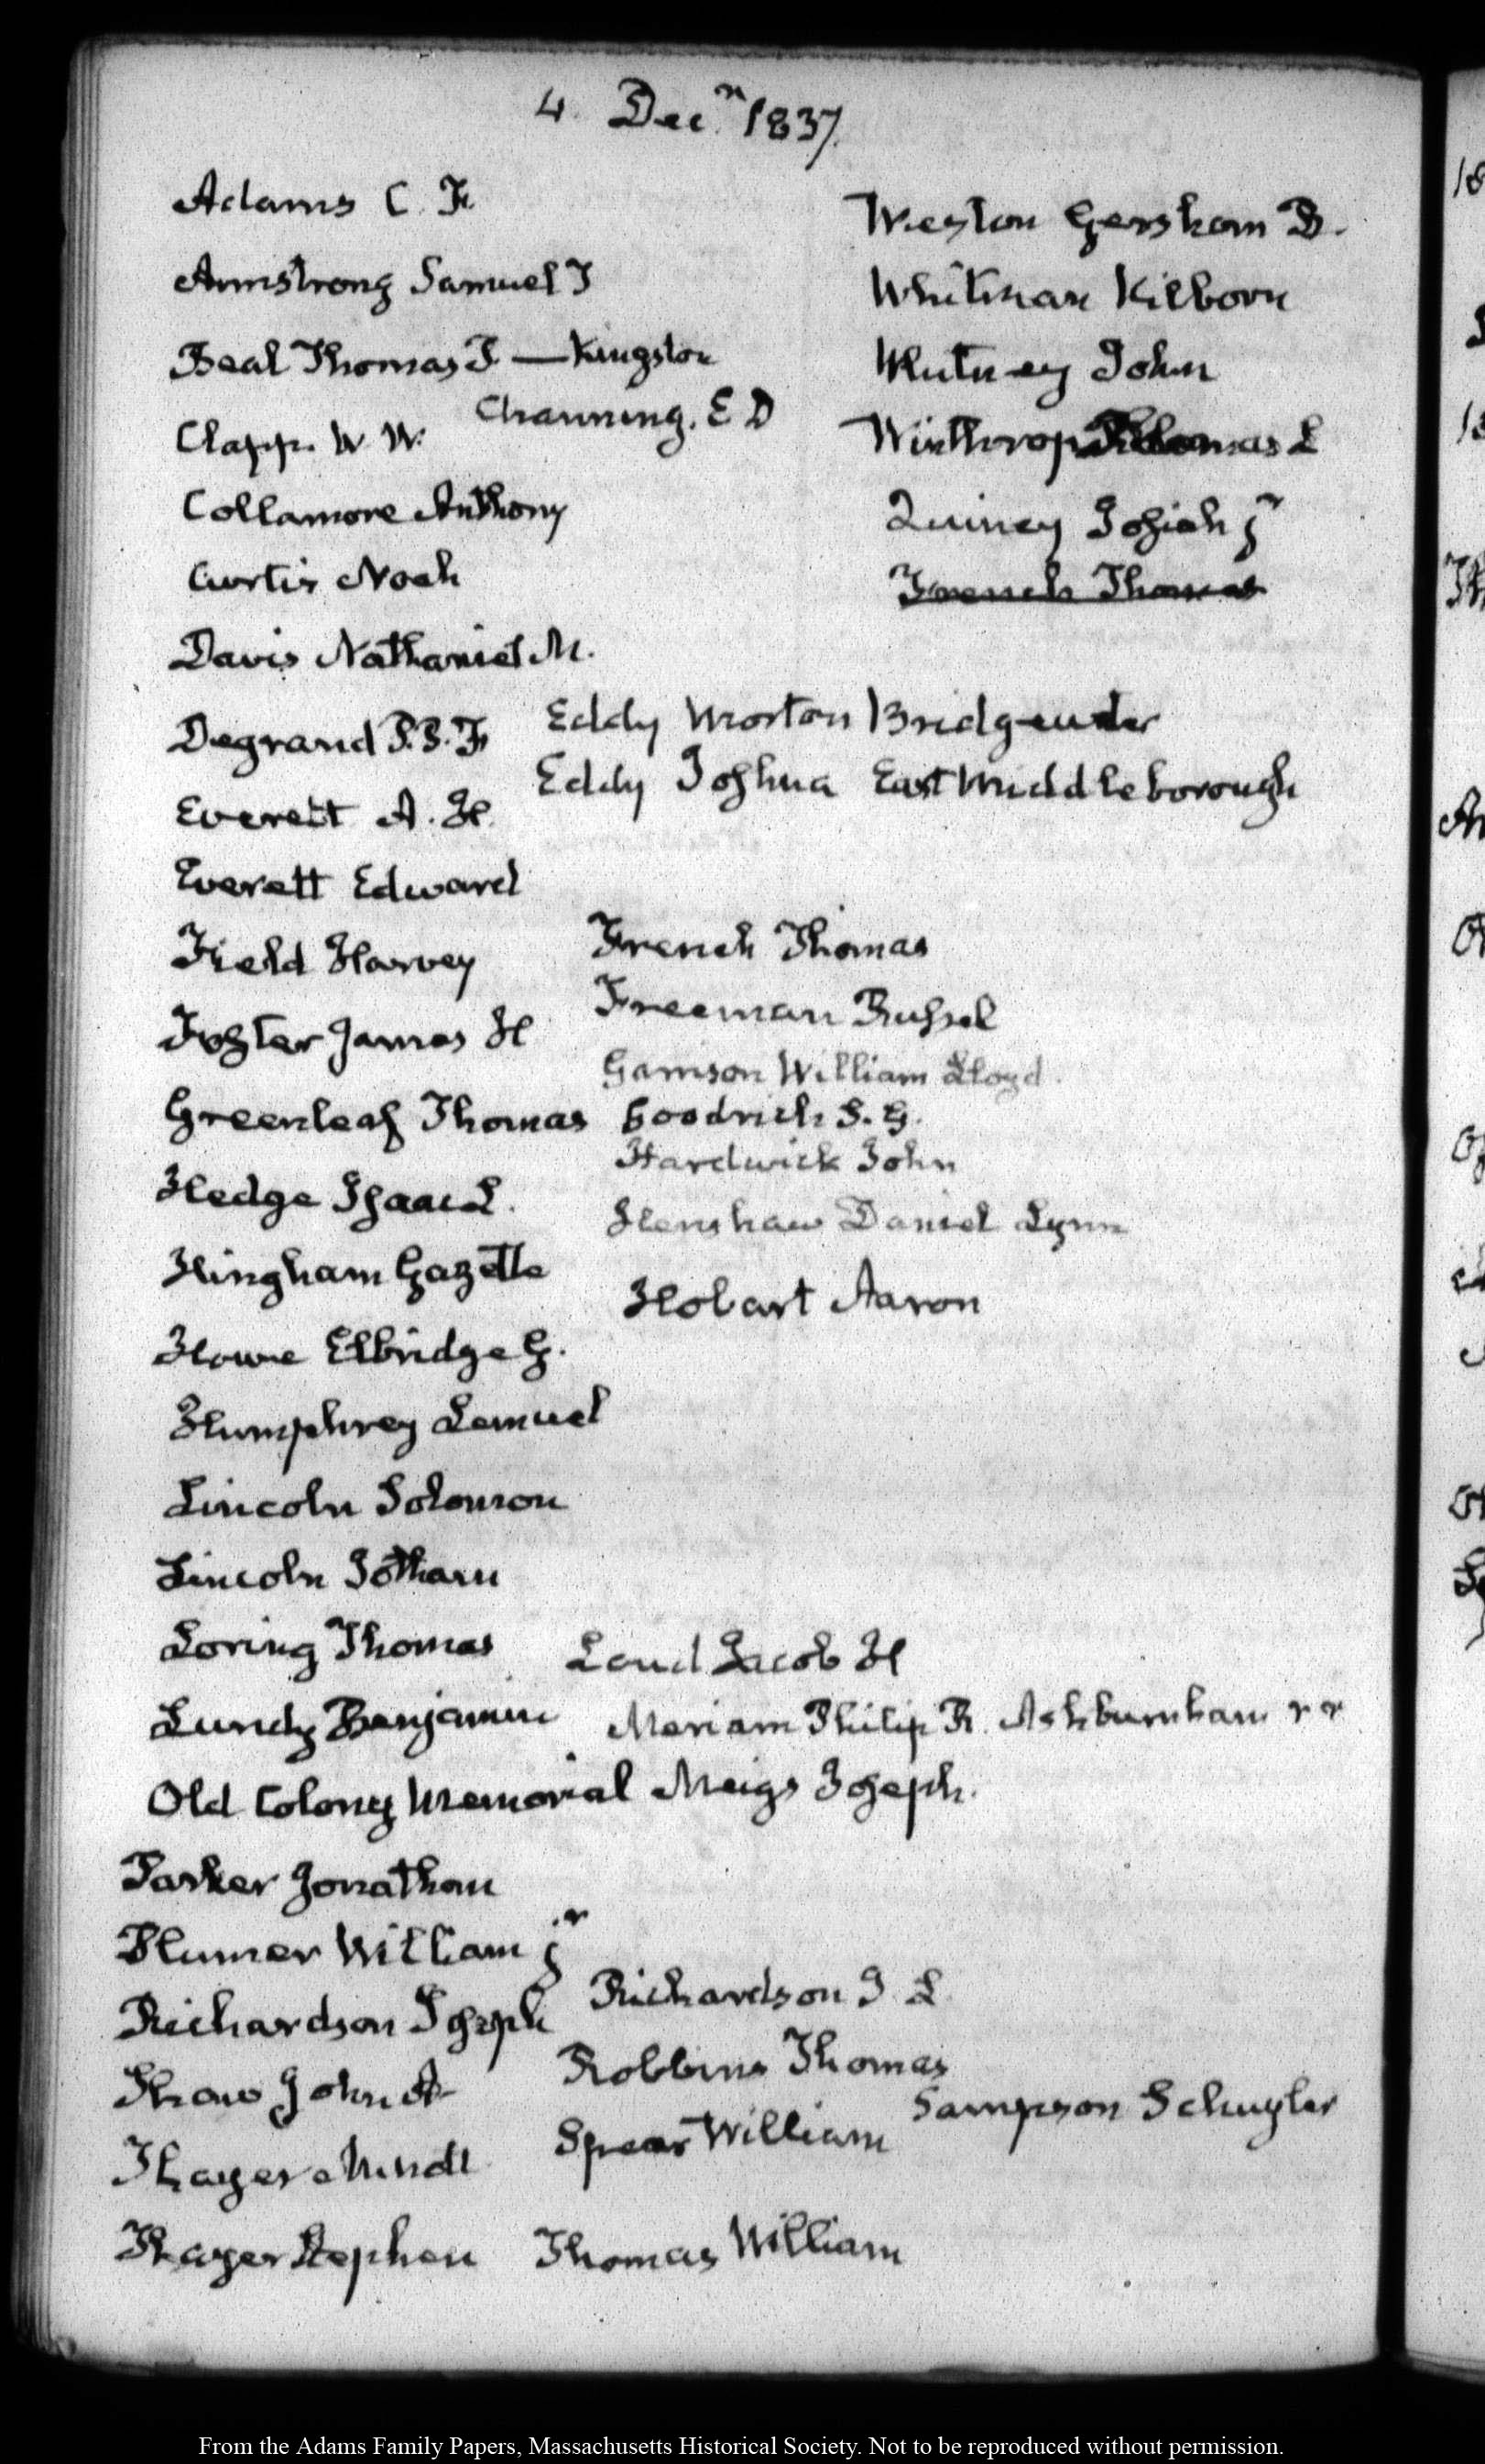 4. Dec.r 1837.
Adams C. F.
Armstrong Samuel T
Beal Thomas P. — Kingston
Channing. E D
Clapp. W. W.
Collamore Anthony
Curtis Noah
Davis Nathaniel M.
Degrand P. P. F.
Eddy Morton Bridgewater
Eddy Joshua East Middleborough
Everett A. H.
Everett Edward
Field Harvey
French Thomas
Foster James H
Freeman Russel
Garrison William Lloyd.
Greenleaf Thomas
Goodrich S. G.
Hardwick John
Hedge Isaac L.
Henshaw Daniel Lynn
Hingham Gazette
Hobart Aaron
Howe Elbridge G.
Humphrey Lemuel
Lincoln Solomon
Lincoln Jotham
Loring Thomas
Loud Jacob H
Lundy Benjamin
Meriam Philip R. Ashburnham
Old Colony Memorial
Meigs Joseph.
Parker Jonathan
Plumer William jr
Richardson Joseph
Richardson J. L
Robbins Thomas
Shaw John A
Sampson Schuyler
Spear William
Thayer Minott
Thayer Stephen
Thomas William
Weston Gershom B.
Whitman Kilborn
Whitney John
Winthrop Thomas L
Quincy Josiah jr
French Thomas
From the Adams Family Papers, Massachusetts Historical Society. Not to be reproduced without permission.